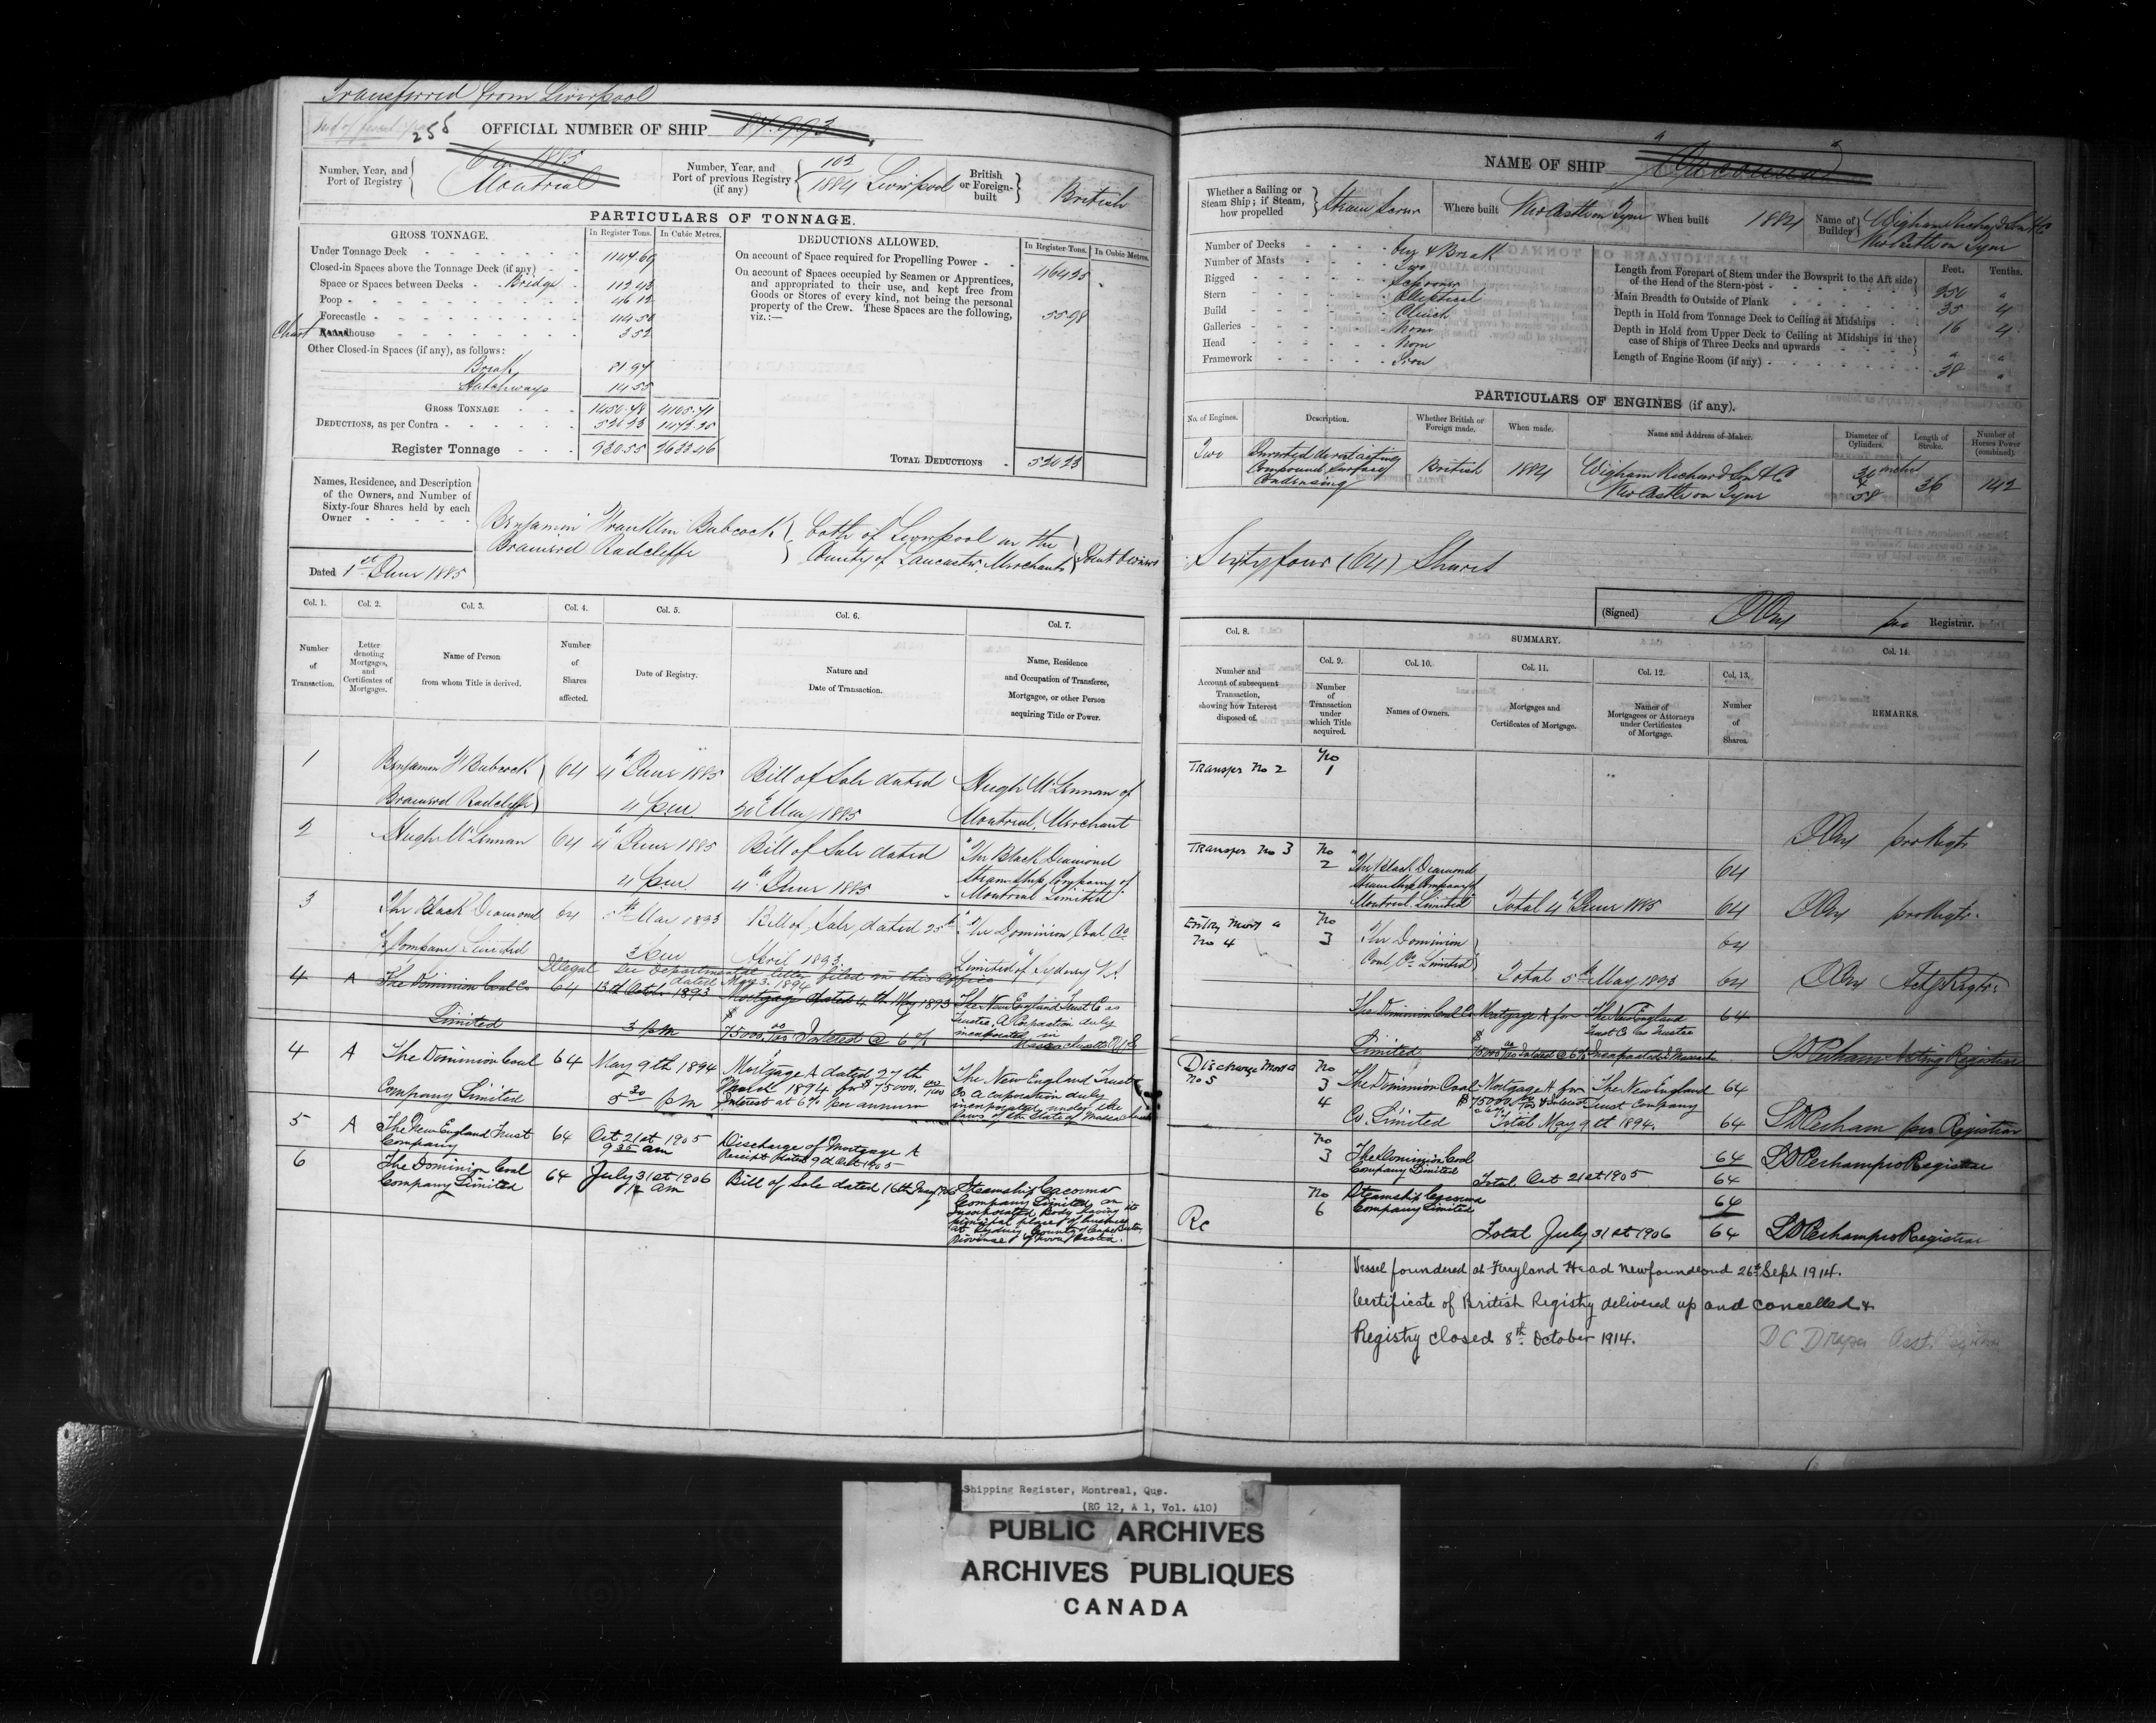 Transferred from Liverpool
255
OFFICIAL NUMBER OF SHIP 87.993
Number, Year, and Port of Registry
1885
Montreal
Number, Year, and Port of previous Registry (if any)
102
1884 Liverpool
British or Foreign-built
British
PARTICULARS OF TONNAGE.
GROSS TONNAGE.
In Register Tons.
In Cubic Metres.
Under Tonnage Deck 1147.69
Closed-in Spaces above the Tonnage Deck (if any)
Space or Spaces between Decks Bridge 112.43
Poop 46.12
Forecastle
Chart house 3.52
Other Closed-in Spaces (if any), as follows:
Break 81.97
Hatchways 14.55
GROSS TONNAGE 1450.78 4105.71
DEDUCTIONS, as per Contra 520.23
Register Tonnage 930.55 2633.46
DEDUCTIONS ALLOWED.
In Register Tons.
In Cubic Metres.
On account of Space required for Propelling Power 464.25
On account of Spaces occupied by Seamen or Apprentices, and appropriated to their use, and kept free from Goods or Stores of every kind, not being the personal property of the Crew. These Spaces are the following, viz.:— 55.98
TOTAL DEDUCTIONS 520.23
Names, Residence, and Description of the Owners, and Number of Sixty-four Shares held by each Owner
Dated 1st June 1885
Benjamin Franklin Babcock
Brainerd Radcliffe
both of Liverpool in the
County of Lancaster, Merchants
Joint Owners
Col. 1.
Col. 2.
Col. 3.
Col. 4.
Col. 5.
Col. 6.
Col. 7.
Number of Transaction.
Letter denoting Mortgages, and Certificates of Mortgages.
Name of Person from whom Title is derived.
Number of Shares affected.
Date of Registry.
Nature and Date of Transaction.
Name, Residence and Occupation of Transferee, Mortgagee, or other Person acquiring Title or Power.
1 Benjamin F Babcock 64 4th June 1885 Bill of Sale dated Hugh McLennan of
Brainerd Radcliffe 4 p.m. May 1885 Montreal, Merchant
2 Hugh McLennan 64 4th June 1885 Bill of Sale dated "The Black Diamond
4 p.m. 4th June 1885 Steam Ship Company of
Montreal Limited"
3 The Black Diamond 64 5th May 1893 Bill of Sale dated 25th "The Dominion Coal Co
Company Limited 3 p.m. April 1893 Limited" of Sydney
Illegal See Departmental letter filed in this office
dated May 3. 1894
4 A The Dominion Coal Co 64 13th October 1893 Mortgage dated 4th May 1893 The New England Trust Co as
Trustee, A Corporation duly
Limited 3 pm $75000.00 Interest @ 6% incorporated in
Massachusetts
4 A The Dominion Coal 64 May 9th 1894 Mortgage A dated 27th The New England Trust
Company Limited 5 30 pm March 1894 for $75000.00 Co a corporation duly
Interest at 6% per annum incorporated under the
laws of the State of Massachusetts
5 A The New England Trust 64 Oct 21st 1905 Discharge of Mortgage A
Company 9 35 am Receipt dated 9th Oct 1905
6 The Dominion Coal 64 July 31st 1906 Bill of Sale dated 16th May 1906 Steamship Cacouna
Company Limited am Company Limited, an
Incorporated Body having its
principal place of business
at Sydney County of Cape Breton,
Province of Nova Scotia.
NAME OF SHIP "Cacouna"
Whether a Sailing or Steam Ship; if Steam, how propelled
Steam Screw
Where built
Newcastle on Tyne
When built
1884
Name of Builder
Wigham Richardson & Co
Newcastle on Tyne
Number of Decks One & Break
Number of Masts Two
Rigged Schooner
Stern Elliptical
Build Clinch
Galleries None
Head None
Framework Iron
Feet.
Tenths.
Length from Forepart of Stem under the Bowsprit to the Aft side of the Head of the Stern-post 250
Main Breadth to Outside of Plank 35 4
Depth in Hold from Tonnage Deck to Ceiling at Midships 16 4
Depth in Hold from Upper Deck to Ceiling at Midships in the case of Ships of Three Decks and upwards
Length of Engine Room (if any) 38
PARTICULARS OF ENGINES (if any).
No. of Engines.
Description.
Whether British or Foreign made.
When made.
Name and Address of Maker.
Diameter of Cylinders.
Length of Stroke.
Number of Horses Power (combined).
Two Inverted direct acting British 1884 Wigham Richardson & Co 36 142
Compound, Surface Newcastle on Tyne 58
Condensing
Sixty four (64) Shares
(Signed)
Registrar.
Col. 8.
SUMMARY.
Col. 9.
Col. 10.
Col. 11.
Col. 12.
Col. 13.
Col. 14.
Number and Account of subsequent Transaction, showing how Interest disposed of.
Number of Transaction under which Title acquired.
Names of Owners.
Mortgages and Certificates of Mortgage.
Names of Mortgagees or Attorneys under Certificates of Mortgage.
Number of Shares.
REMARKS.
Transfer No 2 No 1
pro Regtr
Transfer No 3 No 2 "The Black Diamond 64
Steam Ship Company of
Montreal Limited" Total 4th June 1885 64 pro Regtr
Entry Mort A No 4 No 3 The Dominion 64
Coal Co Limited
Total 5th May 1893 64 Actg Regtr
The Dominion Coal Co Mortgage A for The New England 64
Trust Co as Trustee
Limited $75000.00 Interest @ 6% L D Perham Acting Registrar
Discharge Mort A No 5 No 3 The Dominion Coal Mortgage A for The New England 64
4 $75000.00 & Interest Trust Company
Co. Limited Total May 9th 1894. 64 L D Perham pro Registrar
No 3 The Dominion Coal 64 L D Perham pro Registrar
Company Limited Total Oct 21st 1905 64
No 6 Steamship Cacouna 64
Company Limited
Rc
Total July 31st 1906 64 L D Perham pro Registrar
Vessel foundered at Ferryland Head Newfoundland 26th Sept 1914.
Certificate of British Registry delivered up and cancelled &
Registry closed 8th October 1914.
D C Draper Asst.
Shipping Register, Montreal, Que.
(RG 12, A 1, Vol. 410)
PUBLIC ARCHIVES
ARCHIVES PUBLIQUES
CANADA